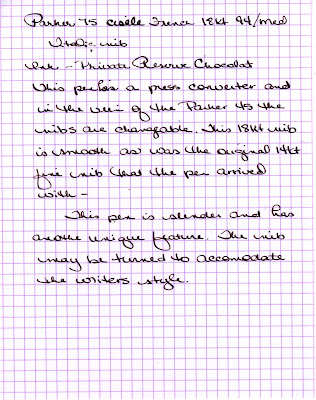 Parker 75 Ciselle France 18kt 94/med
Italic nib
Ink - Private Reserve Chocolat
This pen has a press converter and
in the vein of the Parker 45 the
nibs are changable. This 18kt nib
is smooth as was the original 14kt
fine nib that the pen arrived
with -
This pen is slender and has
another unique feature. The nib
may be turned to accomodate
the writers style.